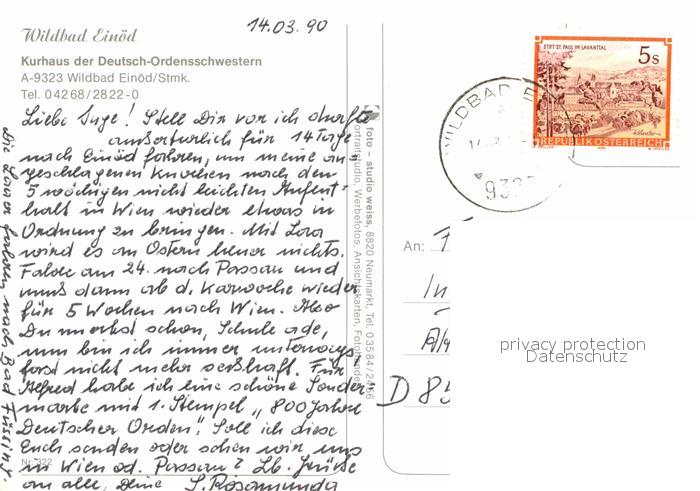 14.03.90
Wildbad Einöd
Kurhaus der Deutsch-Ordensschwestern
A-9323 Wildbad Einöd/Stmk.
Tel. 04268/2822-0
Liebe Inge! Stell Dir vor ich durfte
außertourlich für 14 Tage
nach Einöd fahren, um meine an
geschlagenen Knochen nach den
5 wöchigen nicht leichten Aufent-
halt in Wien wieder etwas in
Ordnung zu bringen. Mit Lora
wird es an Ostern heuer nichts.
Fahre am 24. nach Passau und
muß dann ab d. Karwoche wieder
für 5 Wochen nach Wien. Also
Du merkst schon, Schule ade,
nun bin ich immer unterwegs,
fast nicht mehr seßhaft. Für
Alfred habe ich eine schöne Sonder-
marke mit 1. Stempel „800 Jahre
Deutscher Orden". Soll ich diese
Euch senden oder sehen wir uns
in Wien od. Passau? Lb. Grüße
an alle, Deine S. Rosamunda
Nr. 322
nach Bad Füssing.
foto - studio weiss, 8820 Neumarkt, Tel. 03584/2466
Portraitstudio, Werbefotos, Ansichtskarten, Fotohandel
WILDBAD
9323
STIFT ST. PAUL IM LAVANTTAL
5s
REPUBLIK ÖSTERREICH
An:
In
D 85
privacy protection
Datenschutz